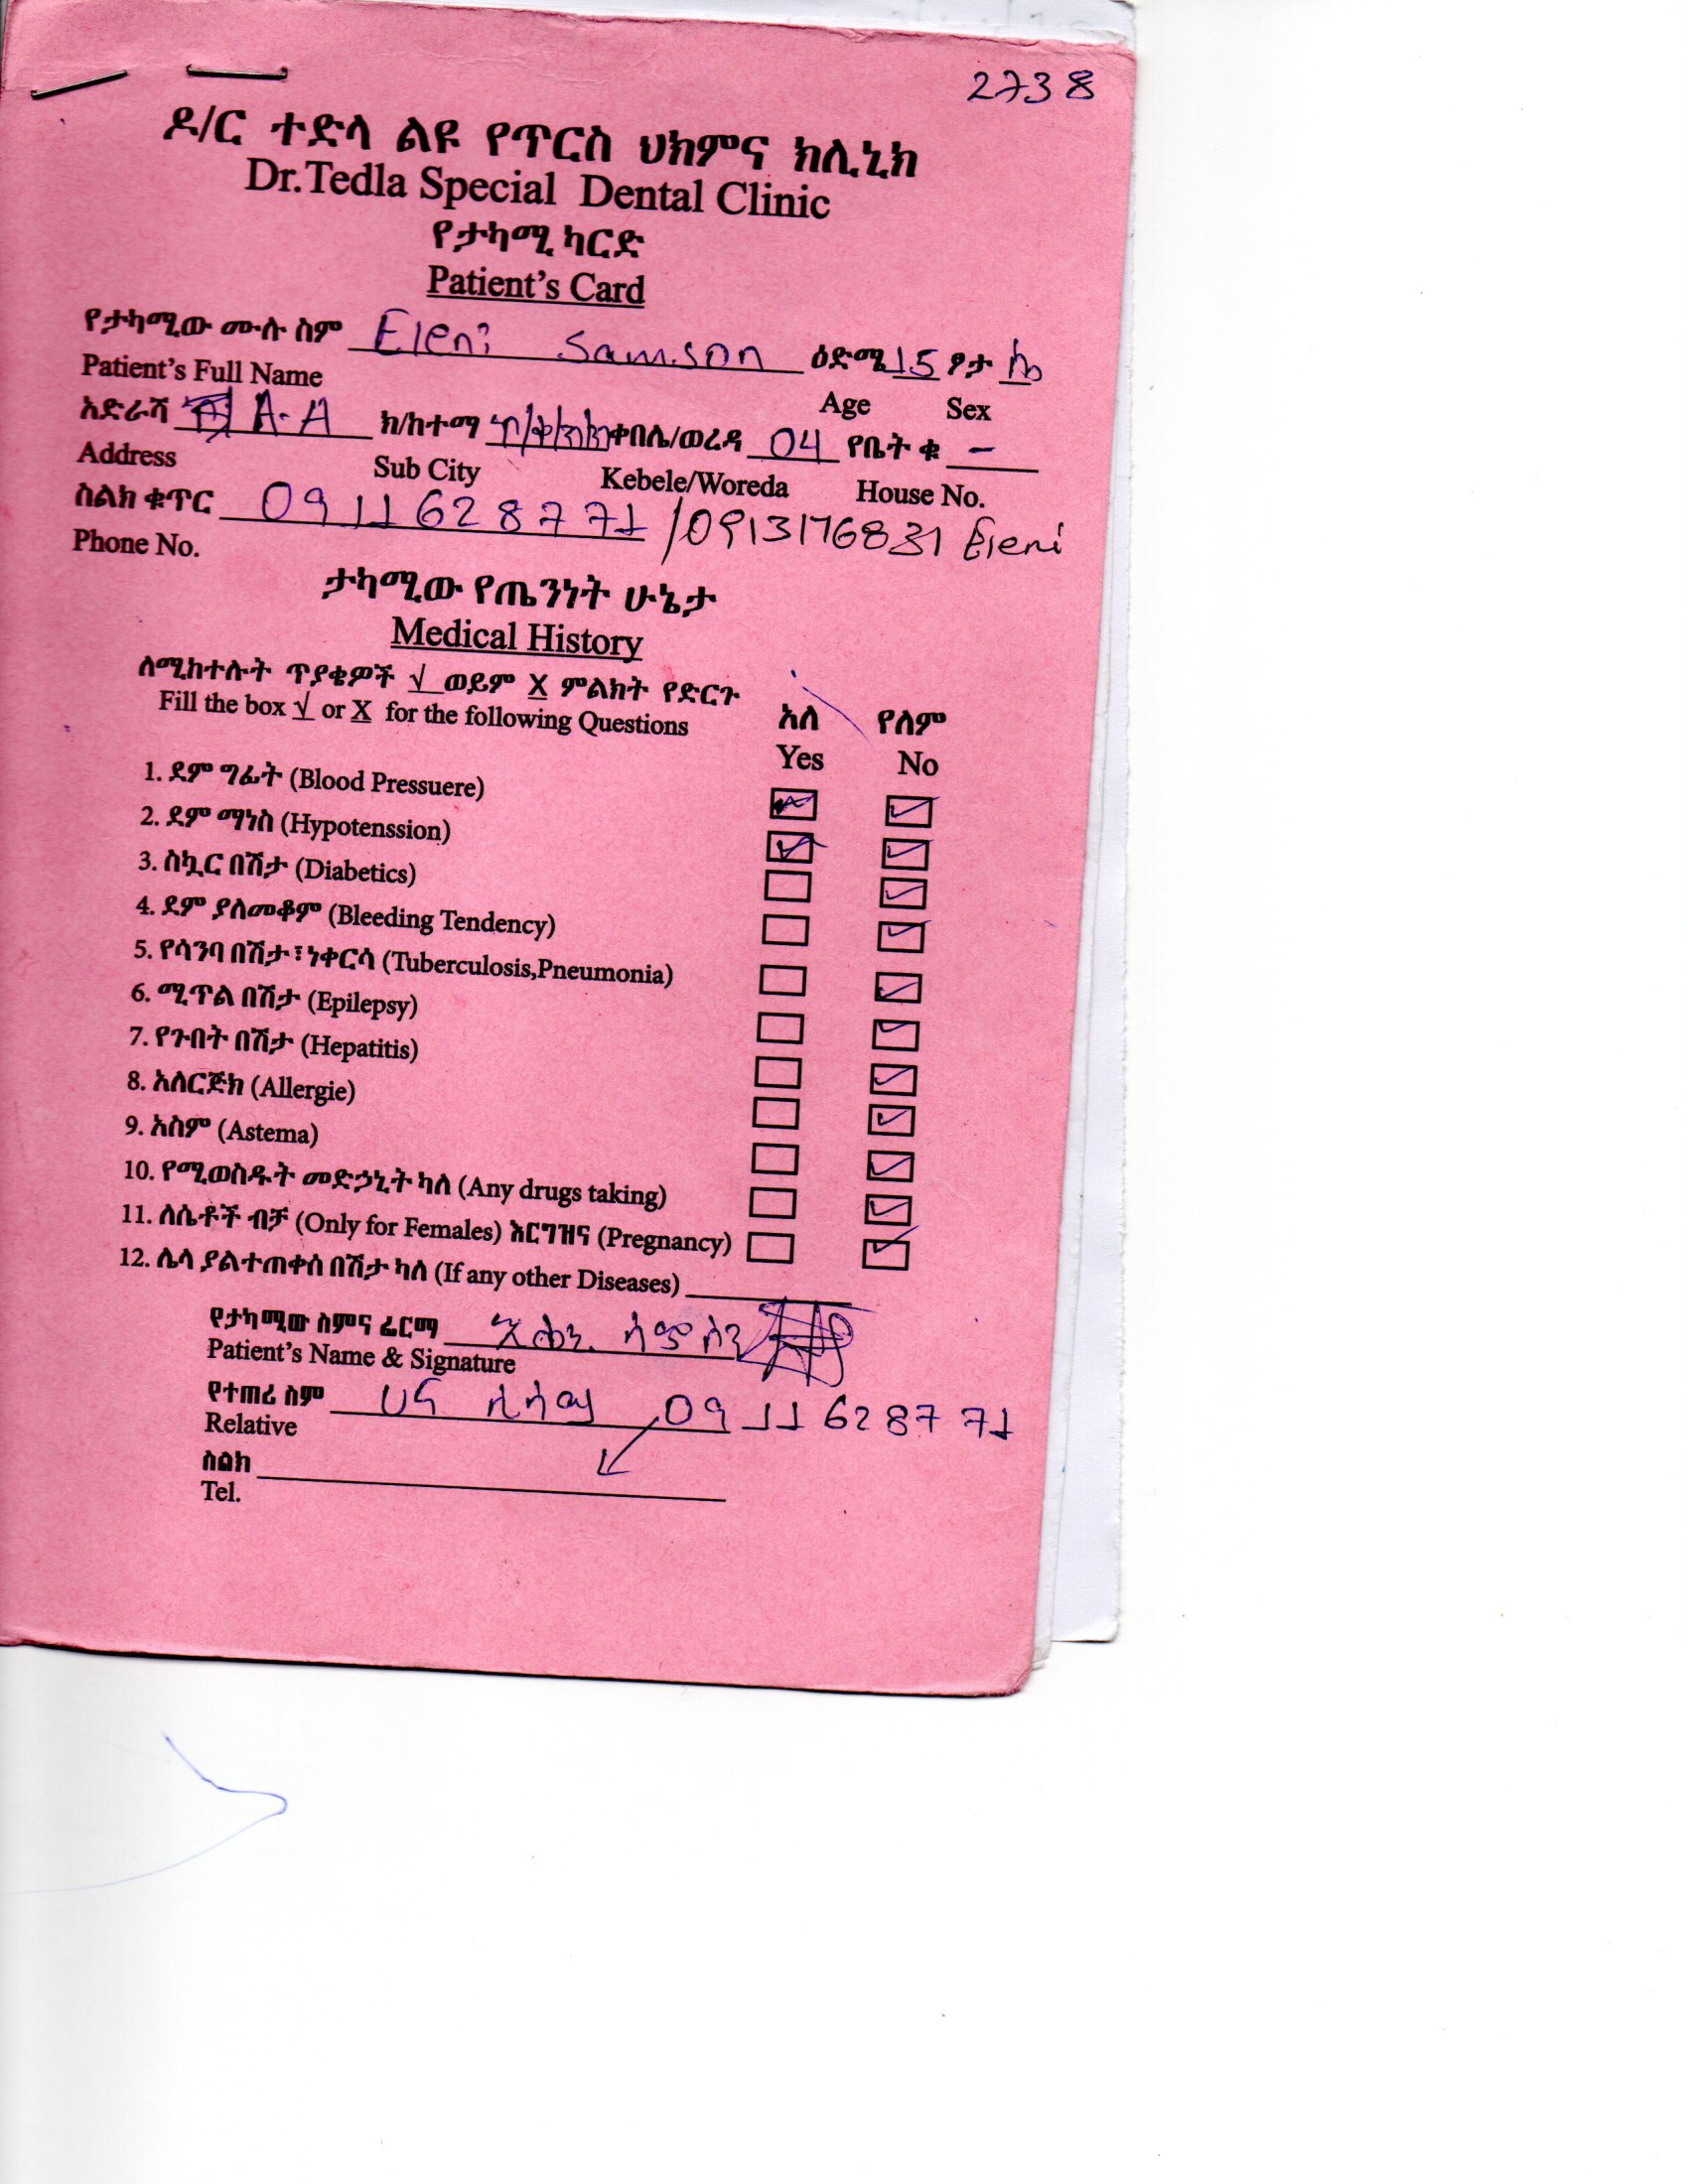 2738
ዶ/ር ተድላ ልዩ የጥርስ ህክምና ክሊኒክ
Dr.Tedla Special Dental Clinic
የታካሚ ካርድ
Patient's Card
የታካሚው ሙሉ ስም Eleni Samson ዕድሜ 15 ፆታ ሴ
Patient's Full Name Age Sex
አድራሻ A.A ክ/ከተማ ቀበሌ/ወረዳ 04 የቤት ቁ -
Address Sub City Kebele/Woreda House No.
ስልክ ቁጥር 0911628771 /0913176831 Eleni
Phone No.
ታካሚው የጤንነት ሁኔታ
Medical History
ለሚከተሉት ጥያቄዎች √ ወይም X ምልክት የድርጉ
Fill the box √ or X for the following Questions
አለ የለም
Yes No
1. ደም ግፊት (Blood Pressuere)
2. ደም ማነስ (Hypotenssion)
3. ስኳር በሽታ (Diabetics)
4. ደም ያለመቆም (Bleeding Tendency)
5. የሳንባ በሽታ፣ነቀርሳ (Tuberculosis,Pneumonia)
6. ሚጥል በሽታ (Epilepsy)
7. የጉበት በሽታ (Hepatitis)
8. አለርጅክ (Allergie)
9. አስም (Astema)
10. የሚወስዱት መድኃኒት ካለ (Any drugs taking)
11. ለሴቶች ብቻ (Only for Females) እርግዝና (Pregnancy)
12. ሌላ ያልተጠቀሰ በሽታ ካለ (If any other Diseases)
የታካሚው ስምና ፊርማ ሳምሶን
Patient's Name & Signature
የተጠሪ ስም ሀና 0911628771
Relative
ስልክ
Tel.